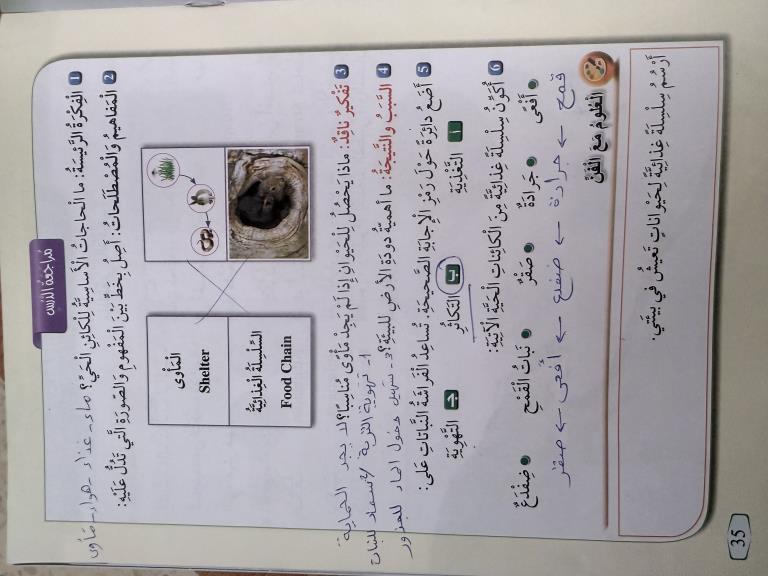 مُراجَعَةُ الدَّرْسِ
1 الْفِكْرَةُ الرَّئيسَةُ: ما الْحاجاتُ الْأَساسِيَّةُ لِلْكائِنِ الْحَيِّ؟ ماء - غذاء - هواء - مأوى
2 الْمَفاهيمُ وَالْمُصْطَلَحاتُ: أَصِلُ بِخَطٍّ بَيْنَ الْمَفْهومِ وَالصّورَةِ الَّتي تَدُلُّ عَلَيْهِ:
الْمَأْوى
Shelter
السِّلْسِلَةُ الْغِذائِيَّةُ
Food Chain
3 تَفْكيرٌ ناقِدٌ: ماذا يَحْصُلُ لِلْحَيَوانِ إِذا لَمْ يَجِدْ مَأْوًى مُناسِبًا؟ لا يجد الحماية
4 السَّبَبُ وَالنَّتيجَةُ: ما أَهَمِّيَّةُ دودَةِ الْأَرْضِ لِلْبيئَةِ؟ 1- تهوية التربة 2- سماد للنبات
3- تسهيل دخول الماء للجذور
5 أَضَعُ دائِرَةً حَوْلَ رَمْزِ الْإِجابَةِ الصَّحيحَةِ. تُساعِدُ الْفَراشَةُ النَّباتاتِ عَلى:
أ التَّغْذِيَةِ ب التَّكاثُرِ جـ التَّهْوِيَةِ
6 أُكَوِّنُ سِلْسِلَةً غِذائِيَّةً مِنَ الْكائِناتِ الْحَيَّةِ الْآتِيَةِ:
● أَفْعى ● جَرادَةٌ ● صَقْرٌ ● نَباتُ الْقَمْحِ ● ضِفْدَعٌ
قمح ← جرادة ← ضفدع ← أفعى ← صقر
الْعُلومُ مَعَ الْفَنِّ
أَرْسُمُ سِلْسِلَةً غِذائِيَّةً لِحَيَواناتٍ تَعيشُ في بيئَتي.
35